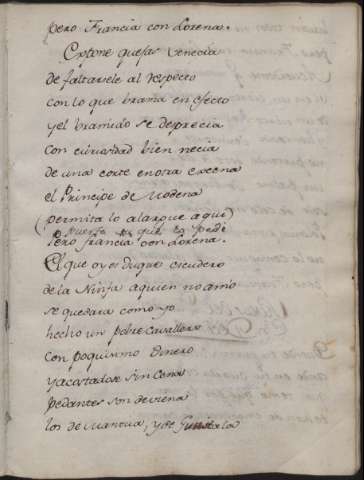 pero Francia con Lorena.
Expone quejas Venecia
de faltarsele al respecto
con lo que brama en efecto
y el bramido se desprecia
con curiosidad bien necia
de una corte en otra escena
el Principe de Modena
(permita lo alargue aqui)
Pero francia con Lorena.
El que oy es duque escudero
de la Ninfa a quien no amo
se quedara como yo
hecho un pobre cavallero
con poquisimo dinero
y acostadose sin Cena
pedantes son de
los de Mantua, y de Guastala